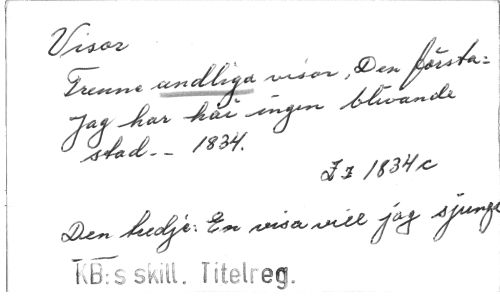 Visor
Trenne andliga visor, Den första:
Jag har här ingen blivande
stad.-- 1834.
Zz 1834 c
Den tredje: En visa vill jag sjunga
KB:s skill. Titelreg.